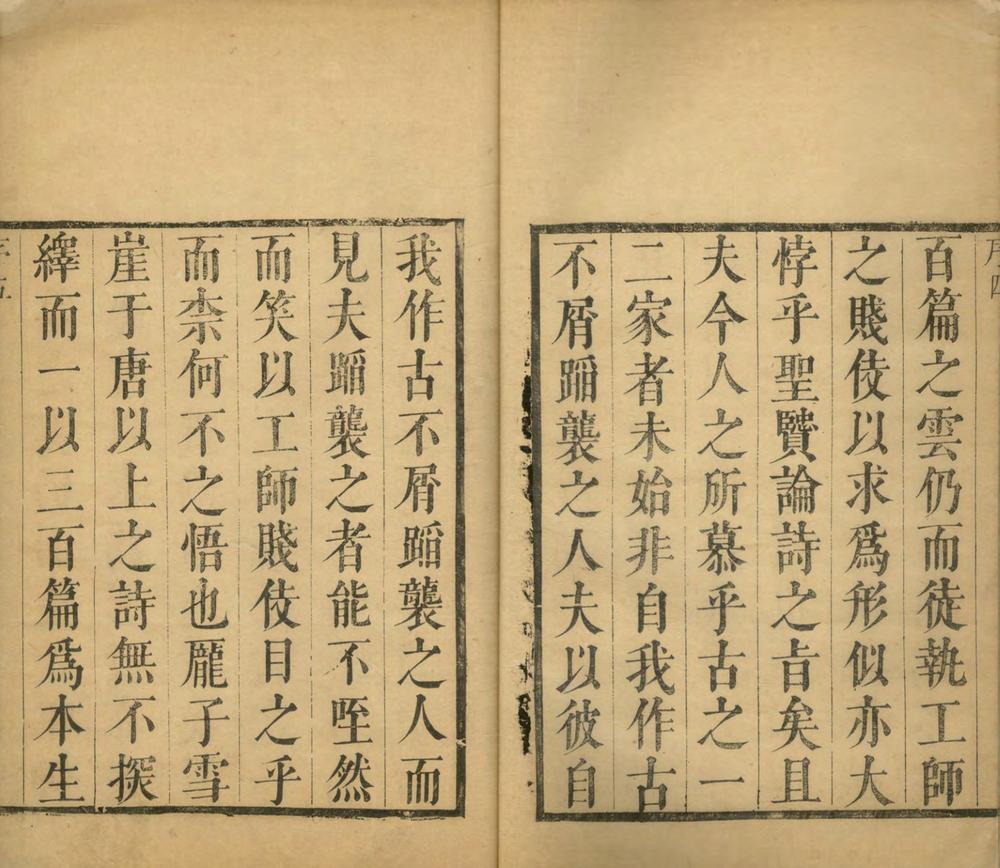 百篇之雲仍而徒執工師
之賤伎以求爲形似亦大
悖乎聖賢論詩之旨矣且
夫今人之所慕乎古之一
二家者未始非自我作古
不屑蹈襲之人夫以彼自
我作古不屑蹈襲之人而
見夫蹈襲之者能不咥然
而笑以工師賤伎目之乎
而柰何不之悟也龐子雪
崖于唐以上之詩無不探
繹而一以三百篇爲本生